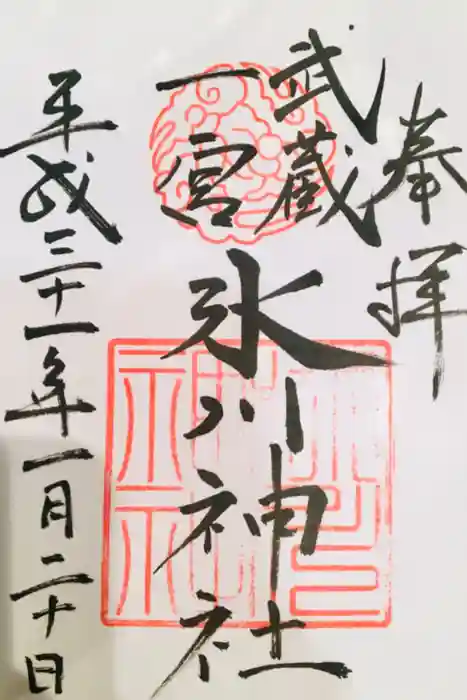 奉拝
武蔵
一宮
氷川神社
平成三十一年一月二十日